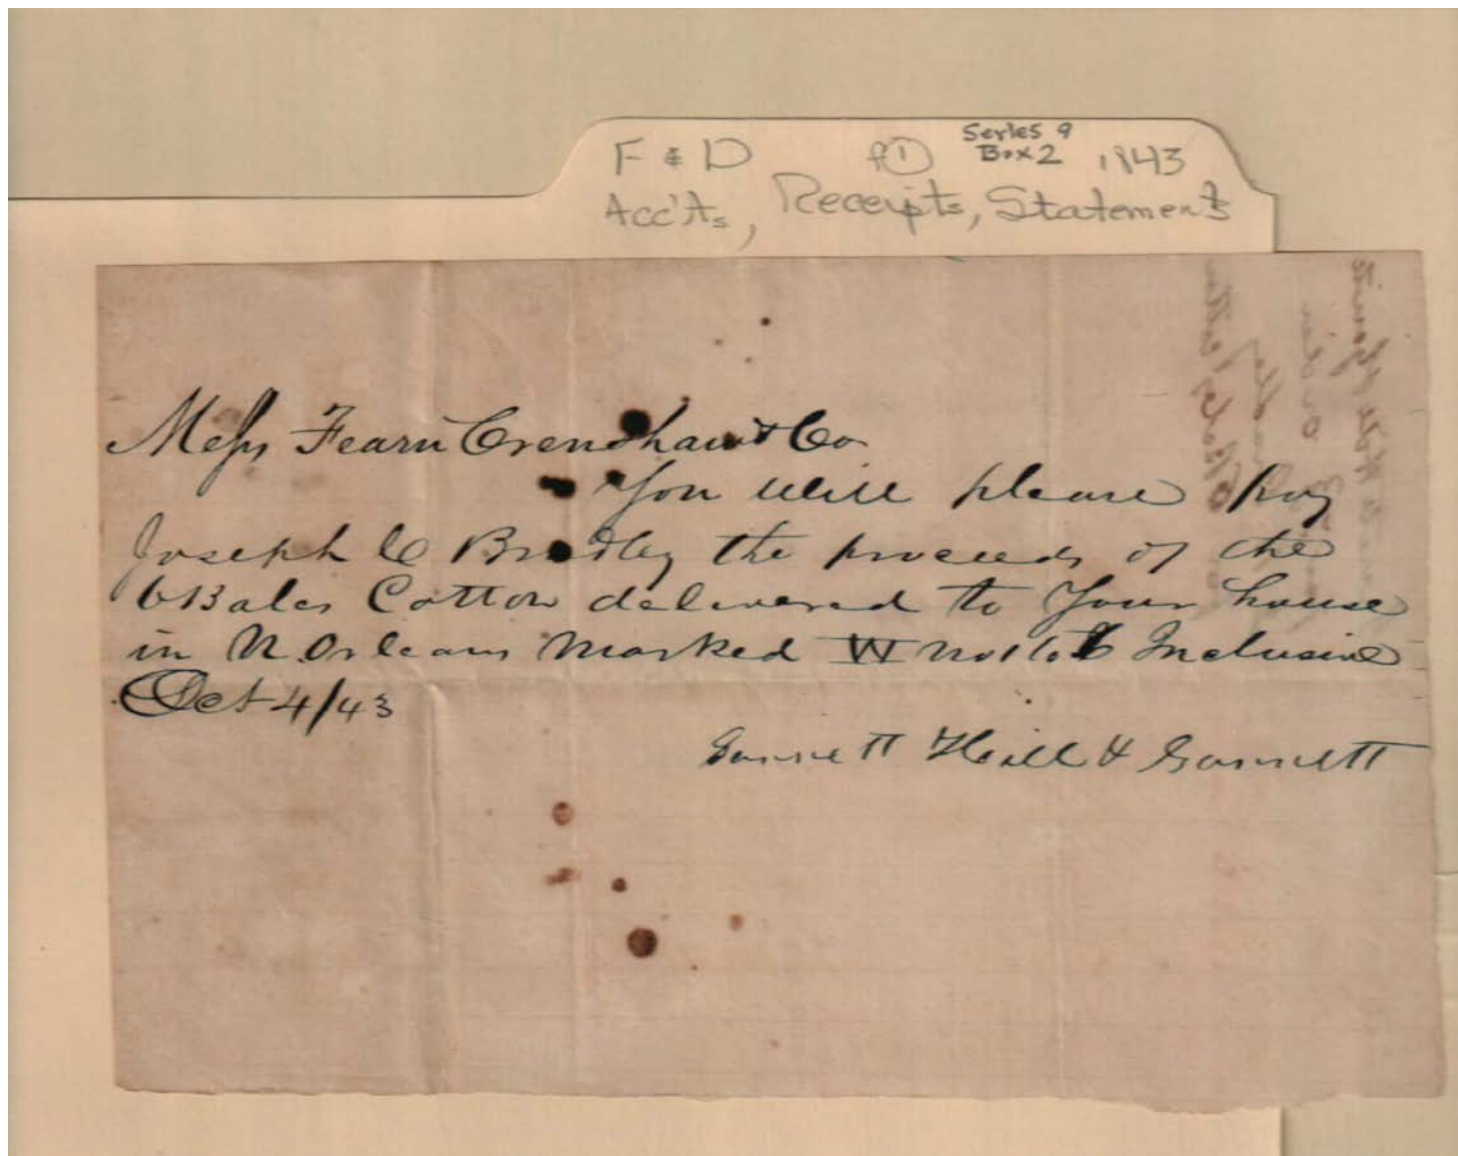 F & D f① Series 9
Box 2 1843
Acc'ts, Receipts, Statements
Messs Fearn Crenshaw & Co
You will please pay
Joseph C Bradley the proceeds of the
6 Bales Cotton delivered to Your house
in N. Orleans Marked W No 1 to 6 Inclusive
Oct 4/43
Garnett Hill & Garnett